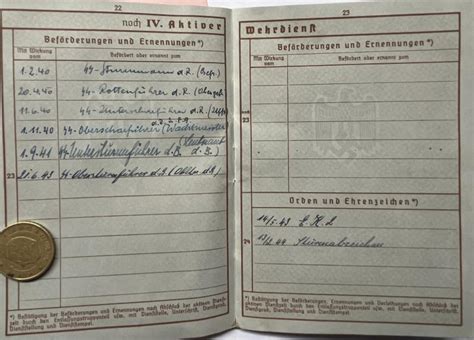 22
noch IV. Aktiver
Beförderungen und Ernennungen*)
Mit Wirkung vom
Befördert oder ernannt zum
1.2.40 ᛋᛋ-Sturmmann d.R.
20.4.40 ᛋᛋ-Rottenführer d.R.
11.6.40 ᛋᛋ-Unterscharführer d.R.
d.R.
1.11.40 ᛋᛋ-Oberscharführer (Wachtmeister)
1.9.41 ᛋᛋ-Untersturmführer d.R. (Leutnant d.R.)
23
21.6.43 ᛋᛋ-Obersturmführer d.R.
*) Bestätigung der Beförderungen und Ernennungen nach Abschluß der aktiven Dienstzeit durch den Entlassungstruppenteil usw. mit Datum, Unterschrift, Dienstgrad, Dienststellung und Dienststempel
23
Wehrdienst
Beförderungen und Ernennungen*)
Mit Wirkung vom
Befördert oder ernannt zum
Orden und Ehrenzeichen*)
24
Sturmabzeichen
*) Bestätigung der Beförderungen, Ernennungen und Verleihungen nach Abschluß der aktiven Dienstzeit durch den Entlassungstruppenteil usw. mit Datum, Unterschrift, Dienstgrad, Dienststellung und Dienststempel